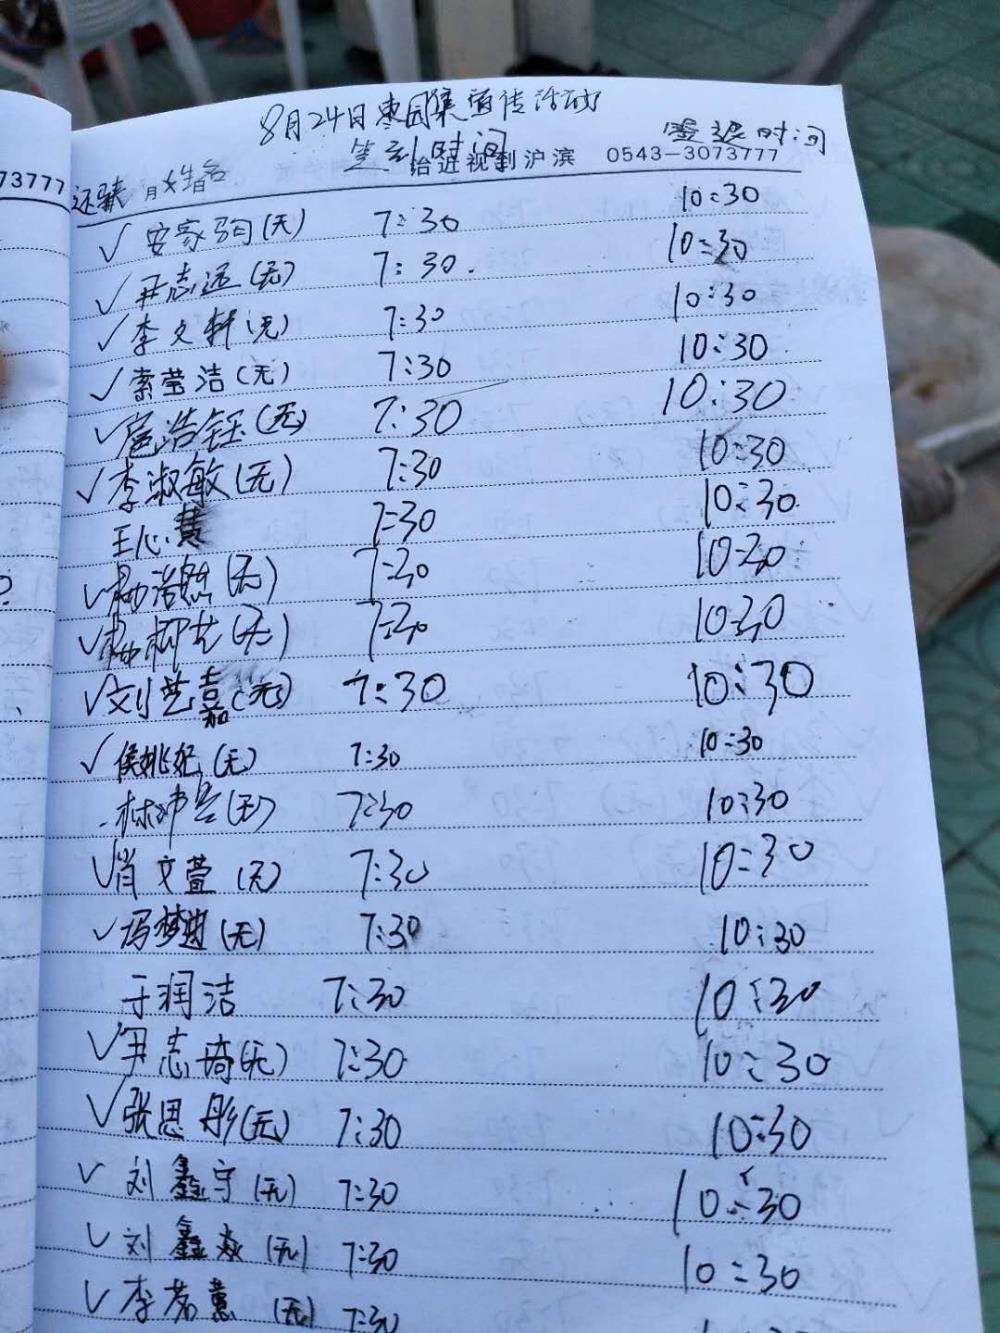 8月24日枣园集宣传活动
签到时间 签退时间
治近视到沪滨 0543-3073777
73777
姓名
✓ 安家驹(无) 7:30 10:30
✓ 尹志远(无) 7:30. 10:30
✓ 李文轩(无) 7:30 10:30
✓ 索莹洁(无) 7:30 10:30
✓ 扈浩钰(无) 7:30 10:30
✓ 李淑敏(无) 7:30 10:30
王心慧 7:30 10:30
✓ 杨浩然(无) 7:30 10:30
✓ 杨柳艺(无) 7:30 10:30
✓ 刘艺嘉(无) 7:30 10:30
✓ 侯姚妃(无) 7:30 10:30
林冲(无) 7:30 10:30
✓ 肖文萱(无) 7:30 10:30
✓ 冯梦迪(无) 7:30 10:30
于润洁 7:30 10:30
✓ 尹志琦(无) 7:30 10:30
✓ 张思彤(无) 7:30 10:30
✓ 刘鑫宇(无) 7:30 10:30
✓ 刘鑫焱(无) 7:30 10:30
✓ 李若薏(无) 7:30